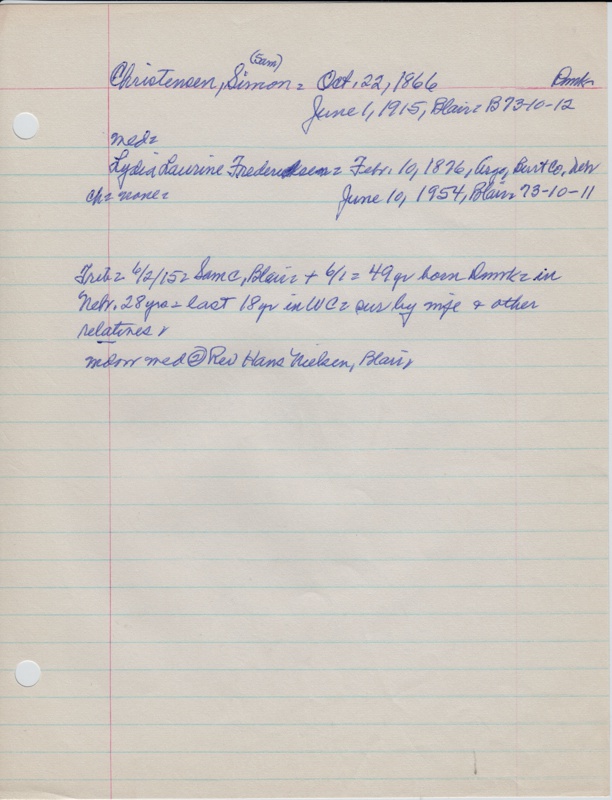 (Sam)
Christensen, Simon = Oct. 22, 1866 Dmmk
June 1, 1915, Blair = B73-10-12
med=
Lydia Laurine Frederiksen = Febr. 10, 1876, Argo, Burt Co, Neb
ch = none = June 10, 1954, Blair = 73-10-11
Trib = 6/2/15 = Sam C, Blair = + 6/1 = 49 yr born Dmmk = in
Nebr. 28 yrs = last 18 yr in WC = sur by wife & other
relatives
widow med @ Rev Hans Nielsen, Blair